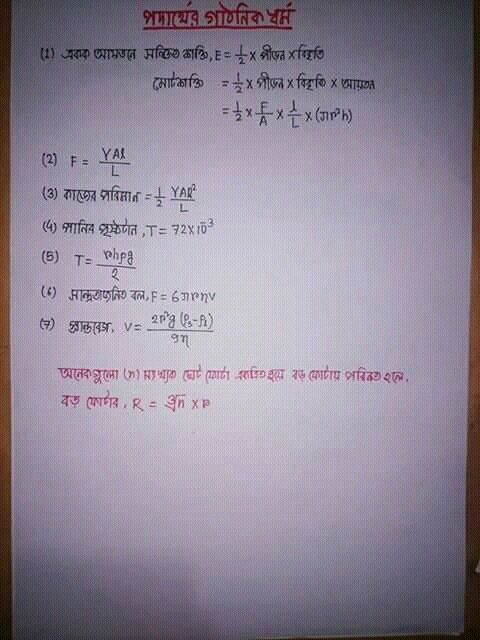 পদার্থের গাঠনিক ধর্ম
(1) একক আয়তনে সঞ্চিত শক্তি, E = 1/2 × পীড়ন × বিকৃতি
মোটশক্তি = 1/2 × পীড়ন × বিকৃতি × আয়তন
= 1/2 × F/A × l/L × (πr²h)
(2) F = YAl/L
(3) কাজের পরিমান = 1/2 YAl²/L
(4) পানির পৃষ্ঠটান, T = 72×10⁻³
(5) T = rhρg/2
(6) সান্দ্রতাজনিত বল, F = 6πrηv
(7) প্রান্তবেগ, V = 2r²g (ρs-ρf)/9η
অনেকগুলো (n) সংখ্যক ছোট ফোটা একত্রিত হয়ে বড় ফোটায় পরিনত হলে,
বড় ফোটার, R = ∛n × r